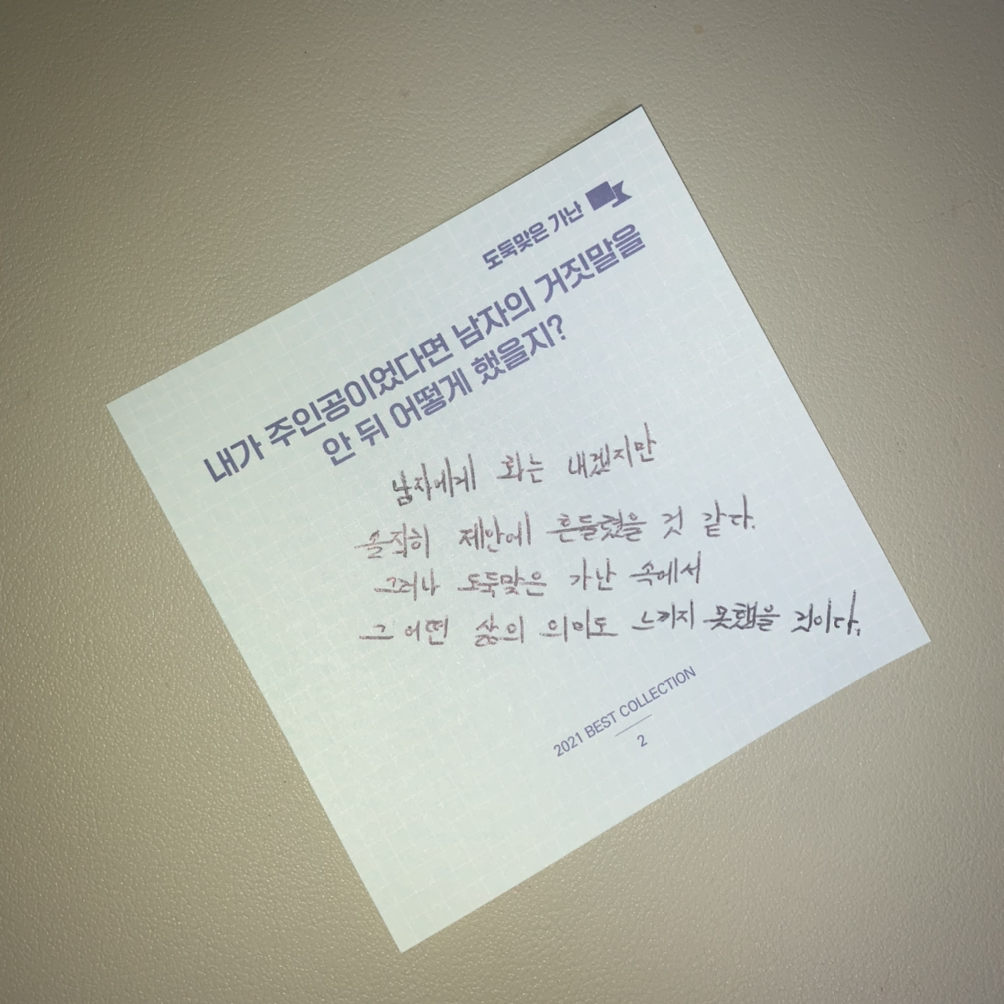 도둑맞은 가난
내가 주인공이었다면 남자의 거짓말을
안 뒤 어떻게 했을지?
남자에게 화는 내겠지만
솔직히 제안에 흔들렸을 것 같다.
그러나 도둑맞은 가난 속에서
그 어떤 삶의 의미도 느끼지 못했을 것이다.
2021 BEST COLLECTION
2